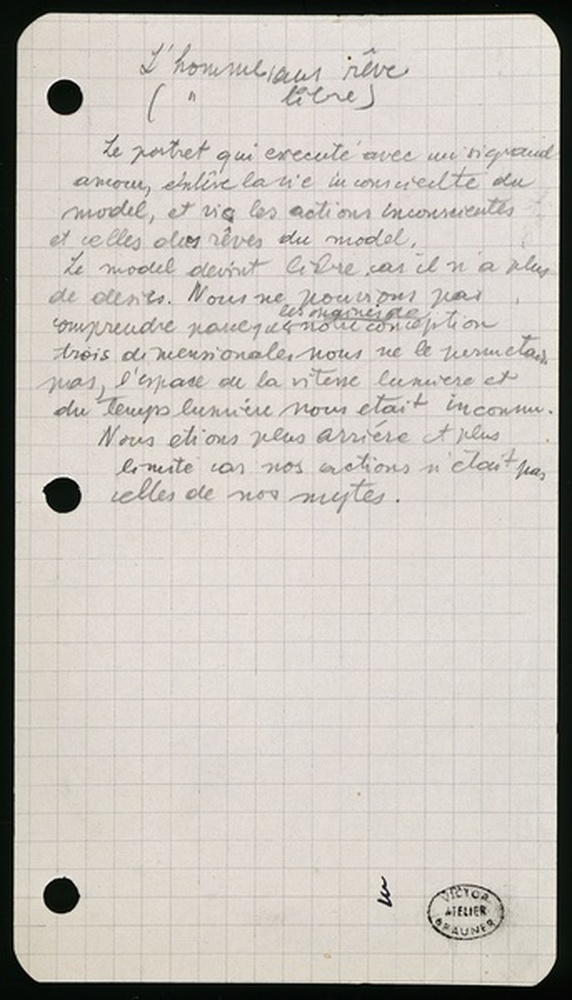 L'homme sans rêve
( " libre)
Le portret qui executé avec un si grand
amour, enlève la vie inconsciente du
model, et vis les actions inconscientes
et celles des rêves du model.
Le model devint libre car il n'a plus
de desirs. Nous ne pouvions pas
les origines de
comprendre parceque notre conception
trois dimensionale, nous ne le permetais
pas, l'espase de la vitesse lumiere et
du temps lumière nous etait inconnu.
Nous etions plus arriére et plus
limité car nos actions n'était pas
celles de nos mytes.
VICTOR
ATELIER
BRAUNER